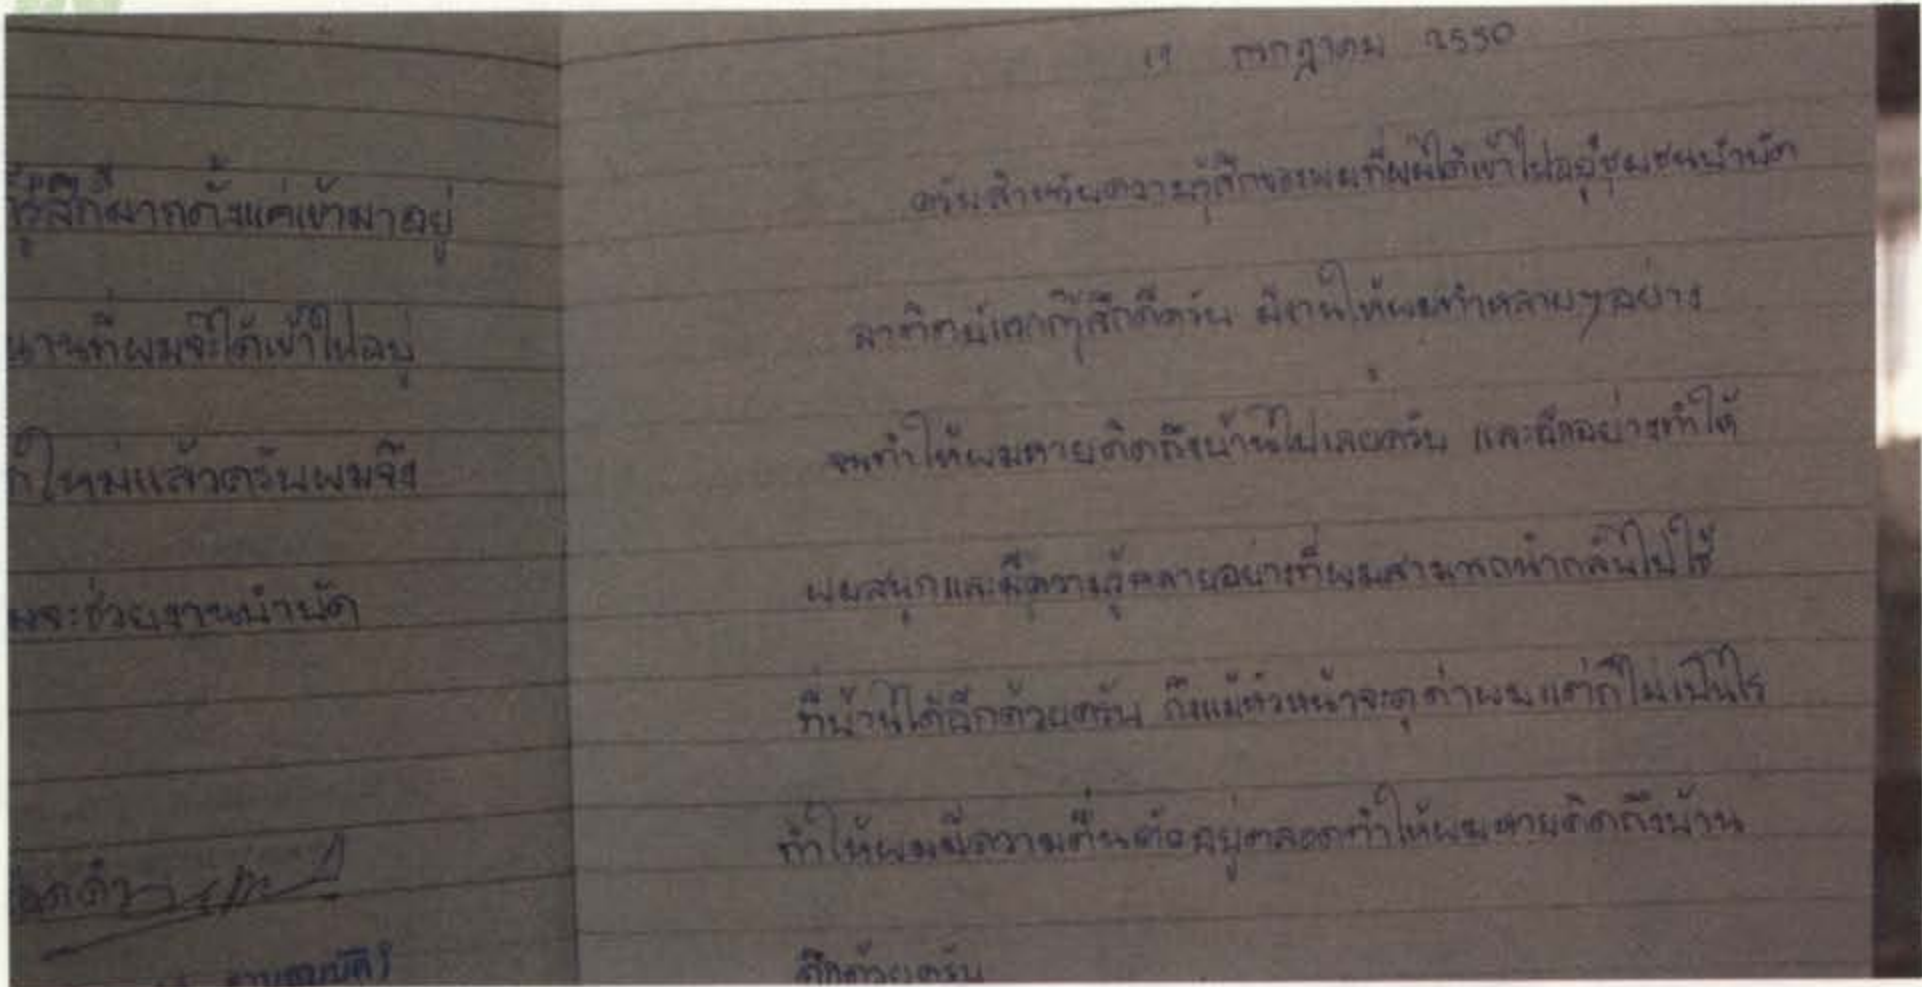 รู้สึกมากตั้งแต่เข้ามาอยู่
นานที่ผมจะได้เข้าไปอยู่
ใหม่แล้วครับผมจึง
ช่วยงานบำบัด
กรกฎาคม 2550
ครับสำหรับความรู้สึกของผมที่ผมได้เข้าไปอยู่ชุมชนบำบัด
อาทิตย์แรกรู้สึกดีครับ มีงานให้ผมทำหลายๆอย่าง
จนทำให้ผมหายคิดถึงบ้านไปเลยครับ และอีกอย่างทำให้
ผมสนุกและมีความรู้หลายอย่างที่ผมสามารถนำกลับไปใช้
ที่บ้านได้อีกด้วยครับ ถึงแม้หัวหน้าจะดุด่าผมแต่ก็ไม่เป็นไร
ทำให้ผมมีความตื่นตัวอยู่ตลอดทำให้ผมหายคิดถึงบ้าน
อีกด้วยครับ